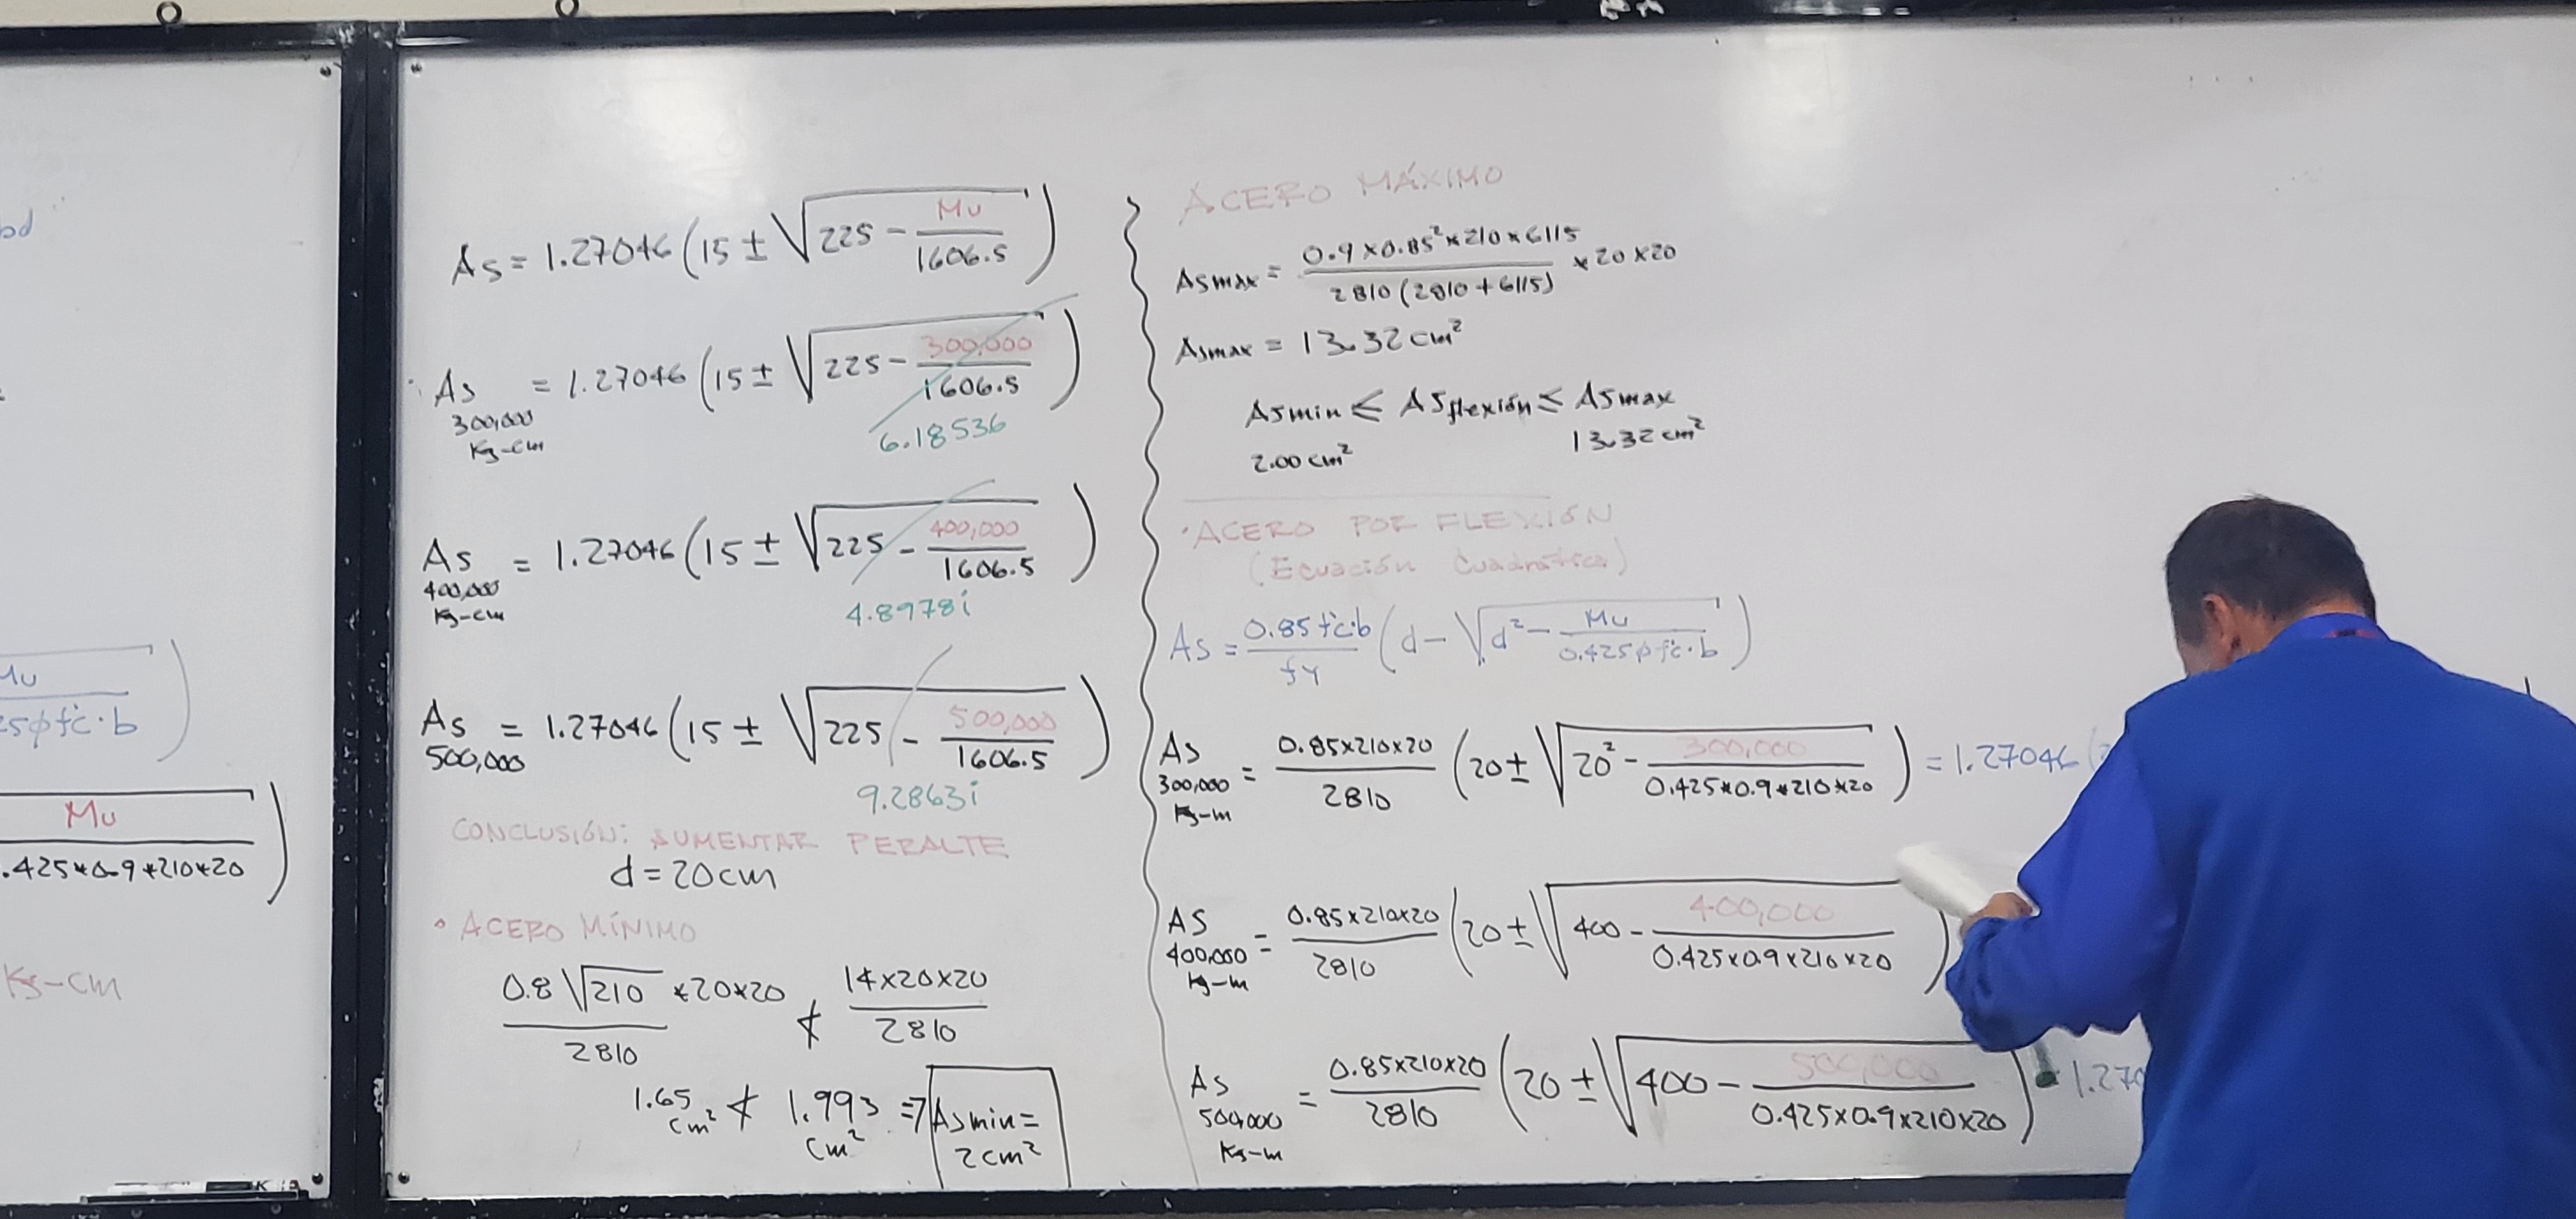 bd
Mu
25ϕ f'c·b
Mu
.425*0.9*210*20
Kg-cm
As = 1.27046 (15 ± √(225 - Mu/1606.5))
As 300,000 Kg-cm = 1.27046 (15 ± √(225 - 300,000/1606.5))
6.18536
As 400,000 Kg-cm = 1.27046 (15 ± √(225 - 400,000/1606.5))
4.8978i
As 500,000 = 1.27046 (15 ± √(225 - 500,000/1606.5))
9.2863i
CONCLUSIÓN: AUMENTAR PERALTE
d = 20cm
° ACERO MÍNIMO
0.8√210/2810 *20*20 ≮ 14x20x20/2810
1.65 cm² ≮ 1.993 cm² => Asmin = 2cm²
ACERO MÁXIMO
Asmax = 0.9x0.85²x210x6115/2810(2810+6115) *20x20
Asmax = 13.32 cm²
Asmin ≤ ASflexión ≤ Asmax
2.00 cm² 13.32 cm²
·ACERO POR FLEXIÓN
(Ecuación Cuadrática)
As = 0.85 f'c·b/fy (d - √(d² - Mu/0.425ϕ f'c·b))
As 300,000 Kg-m = 0.85x210x20/2810 (20 ± √(20² - 300,000/0.425*0.9*210*20)) = 1.27046
AS 400,000 Kg-m = 0.85x210x20/2810 (20 ± √(400 - 400,000/0.425x0.9x210x20))
As 500,000 Kg-m = 0.85x210x20/2810 (20 ± √(400 - 500,000/0.425x0.9x210x20)) 1.270